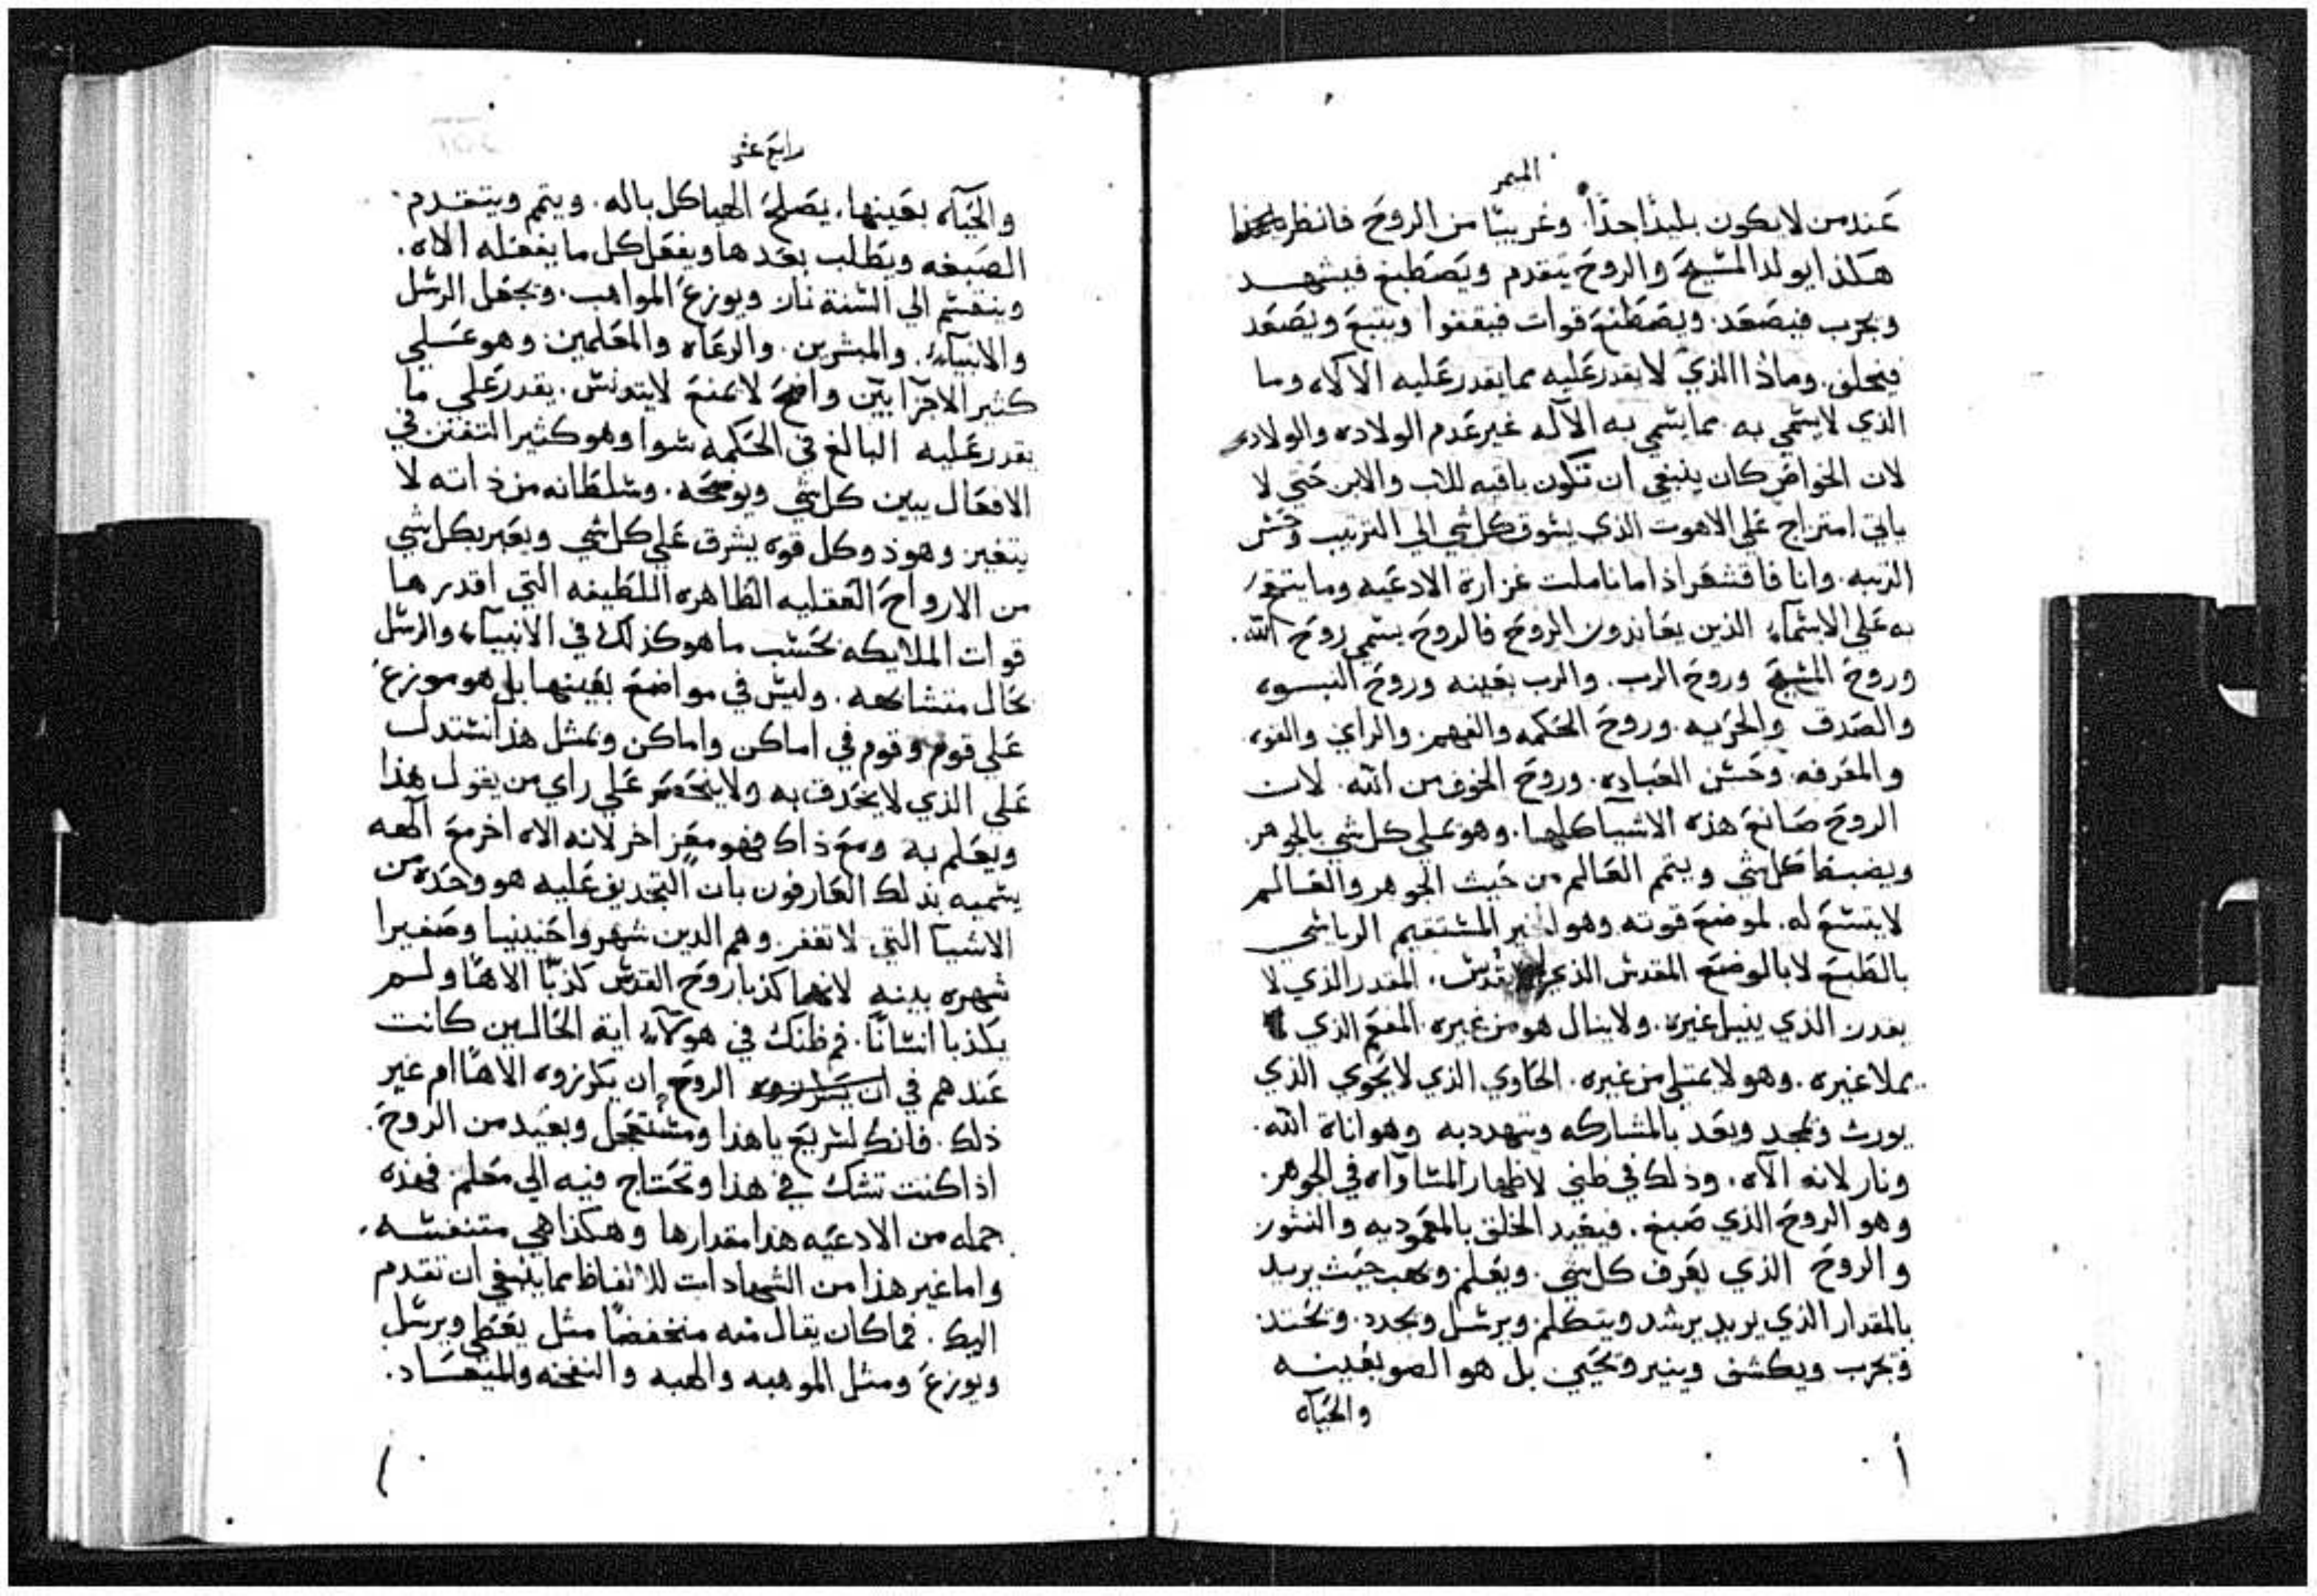 الميمر
عند من لا يكون بليدًا جدًا. وغريبًا من الروح فانظر
هكذا يولد المسيح والروح يتقدم ويصطبغ فيشهد
ويجرب فيصعد. ويصطنع قوات فيقفوا ويتبع ويصعد
فيخلف. وماذا الذي لا يقدر عليه مما يقدر عليه الالاه وما
الذي لا يسمي به مما يسمي به الآله غير عدم الولاده والولاده
لان الخواص كان ينبغي ان تكون باقيه للاب والابن حتي لا
ياتي امتزاج علي الاهوت الذي يسوق كل شي الي الترتيب وحسن
الزينه. وانا فاقشعر اذا ما تاملت غزارة الادعيه وما
به علي الاسماء الذين يعاندون الروح فالروح يسمي روح الله.
وروح المسيح وروح الرب. والرب بعينه وروح النبوه
والصدق والحريه. وروح الحكمه والفهم. والراي والقوه.
والمعرفه. وحسن العباده. وروح الخوف من الله. لان
الروح صانع هذه الاشيا كلها. وهو علي كل شي بالجوهر.
ويضبط كل شي ويتمم العالم من حيث الجوهر والعالم
لا يتسع له. لموضع قوته وهو الخير المستقيم الرياسي
بالطبع لا بالوضع المقدس الذي لا يقدس. المقدر الذي لا
يقدر الذي ينيل غيره. ولا ينال هو من غيره. المفعم الذي
يملا غيره. وهو لا يمتلي من غيره. الحاوي الذي لا يحوي الذي
يورث ويمجد ويعد بالمشاركه ويتهدد به وهو اناة الله.
ونار لانه الآه. وذلك في ظني لاظهار المساوآه في الجوهر.
وهو الروح الذي صبغ. فيعيد الخلق بالمعموديه والنشور
والروح الذي يعرف كل شي. ويعلم. ويهب حيث يريد
بالمقدار الذي يريد يرشد ويتكلم. ويرسل ويحدد. ويحتد
ويجرب ويكشف وينير ويحيي بل هو الضو بعينه
والحيآه
رابع عشر
والحيآه بعينها. يصلح الهياكل باله. ويتمم ويتقدم
الصبغه ويطلب بعدها ويفعل كل ما يفعله الالاه.
وينقسم الي السنة نار ويوزع المواهب. ويجعل الرسل
والانبيآء. والمبشرين. والرعاه والمعلمين. وهو عقلي
كثير الاجزا بين واضح لا يمنع لا يتدنس. يقدر علي ما
يقدر عليه البالغ في الحكمه سوا وهو كثير التفنن في
الافعال يبين كل شي ويوضحه. وسلطانه من ذاته لا
يتغير وهو ذو كل قوه يشرق علي كل شي ويعبر بكل شي
من الارواح العقليه الطاهره اللطيفه التي اقدرها
قوات الملايكه بحسب ما هو كذلك في الانبيآء والرسل
بحال متشابهه. وليس في مواضع بعينها بل هو موزع
علي قوم وقوم في اماكن واماكن وبمثل هذا نستدل
علي الذي لا يحدق به ولا ينحصر علي راي من يقول هذا
ويعلم به ومع ذاك فهو معز اخر لانه الاه اخر مع آلهه
يسميه بذلك العارفون بان التجديف عليه هو وحده من
الاشيا التي لا تغفر. وهم الدين شهروا حنينيا وصفيرا
شهره بينه لانهما كذبا روح القدس كذبًا الاهًا ولم
يكذبا انسانًا. فم ظنك في هولآء اية الحالين كانت
عندهم في الروح ان يكرزوه الاهًا ام غير
ذلك. فانك لسريع يا هذا ومستعجل وبعيد من الروح.
اذا كنت تشك في هذا وتحتاج فيه الي معلم. فهذه
جمله من الادعيه هذا مقدارها وهكذا هي متنفسه.
واما غير هذا من الشهادات للالفاظ مما ينبغي ان تقدم
اليك. فما كان يقال منه منخفضًا مثل يعطي ويرسل
ويوزع ومثل الموهبه والهبه والنفخه والميعاد.